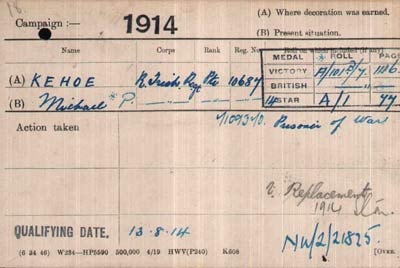 Campaign :— 1914
(A) Where decoration was earned.
(B) Present situation.
Name Corps Rank Reg. No. Roll on which included (if any)
MEDAL ROLL PAGE
(A) KEHOE R. Irish Regt Pte 10687
VICTORY
BRITISH " "
(B) Michael P.
14 STAR A/1 77
Action taken
Prisoner of War
v. Replacement
1914 Star
QUALIFYING DATE. 13-8-14
NW/2/21825.
(6 34 46) W234—HP5590 500,000 4/19 HWV(P240) K608
[OVER.